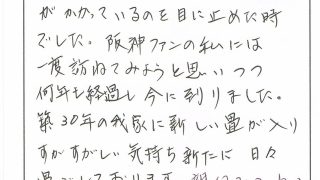 がかかっているのを目に止めた時
でした。阪神ファンの私には
一度訪ねてみようと思いつつ
何年も経過し今に到りました。
築30年の我家に新しい畳が入り
すがすがしい気持ち新たに日々